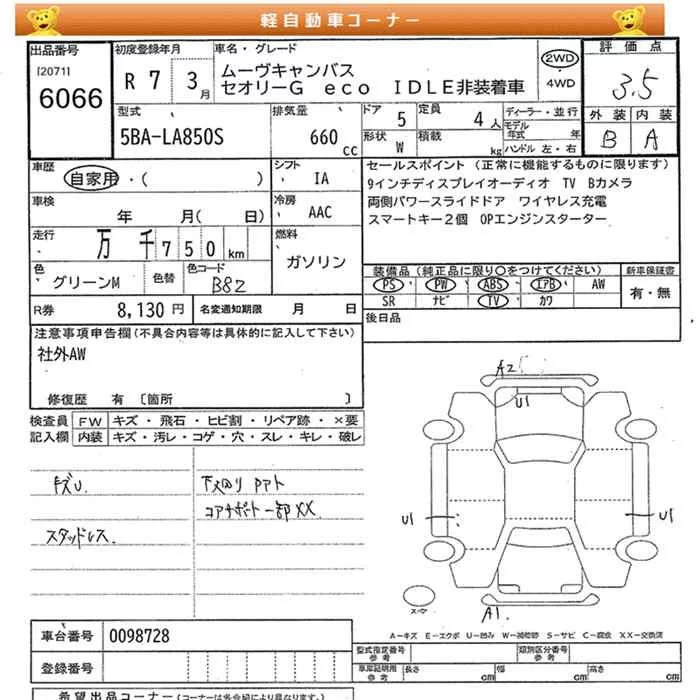 軽自動車コーナー
出品番号 初度登録年月 車名・グレード 評価点
[2071] 6066 R 7 3月 ムーヴキャンバス 2WD 3.5
セオリーG eco IDLE非装着車 4WD
外装 内装
B A
型式 排気量 ドア 定員 ディーラー・並行
5BA-LA850S 660cc 5 4人 モデル年式 年
形状 積載 ハンドル 左・右
W kg
車歴 シフト セールスポイント (正常に機能するものに限ります)
自家用・( ) IA 9インチディスプレイオーディオ TV Bカメラ
車検 冷房 両側パワースライドドア ワイヤレス充電
年 月(日) AAC スマートキー2個 OPエンジンスターター
走行 燃料
万 千750km ガソリン
色 色替 色コード 装備品(純正品に限り○をつけてください) 新車保証書
グリーンM B82 PS PW ABS エアB AW 有・無
SR ナビ TV カワ
R券 8,130円 名変通知期限 月 日 後日品
注意事項申告欄(不具合内容等は具体的に記入して下さい)
社外AW
修復歴 有 〔箇所 〕
検査員 FW キズ・飛石・ヒビ割・リペア跡・×要
記入欄 内装 キズ・汚レ・コゲ・穴・スレ・キレ・破レ
キズU. 下文回り PPト
コアサポート一部XX.
スタッドレス.
A2
U1
U1
U1
A1.
A-キズ E-エクボ U-凹み W-補修跡 S-サビ C-腐食 XX-交換済
車台番号 0098728
型式指定番号 参考 類別区分番号 参考
登録番号 車庫証明用 参考 長さ cm 幅 cm 高さ cm
希望出品コーナー(コーナーは各会場により異なります。)